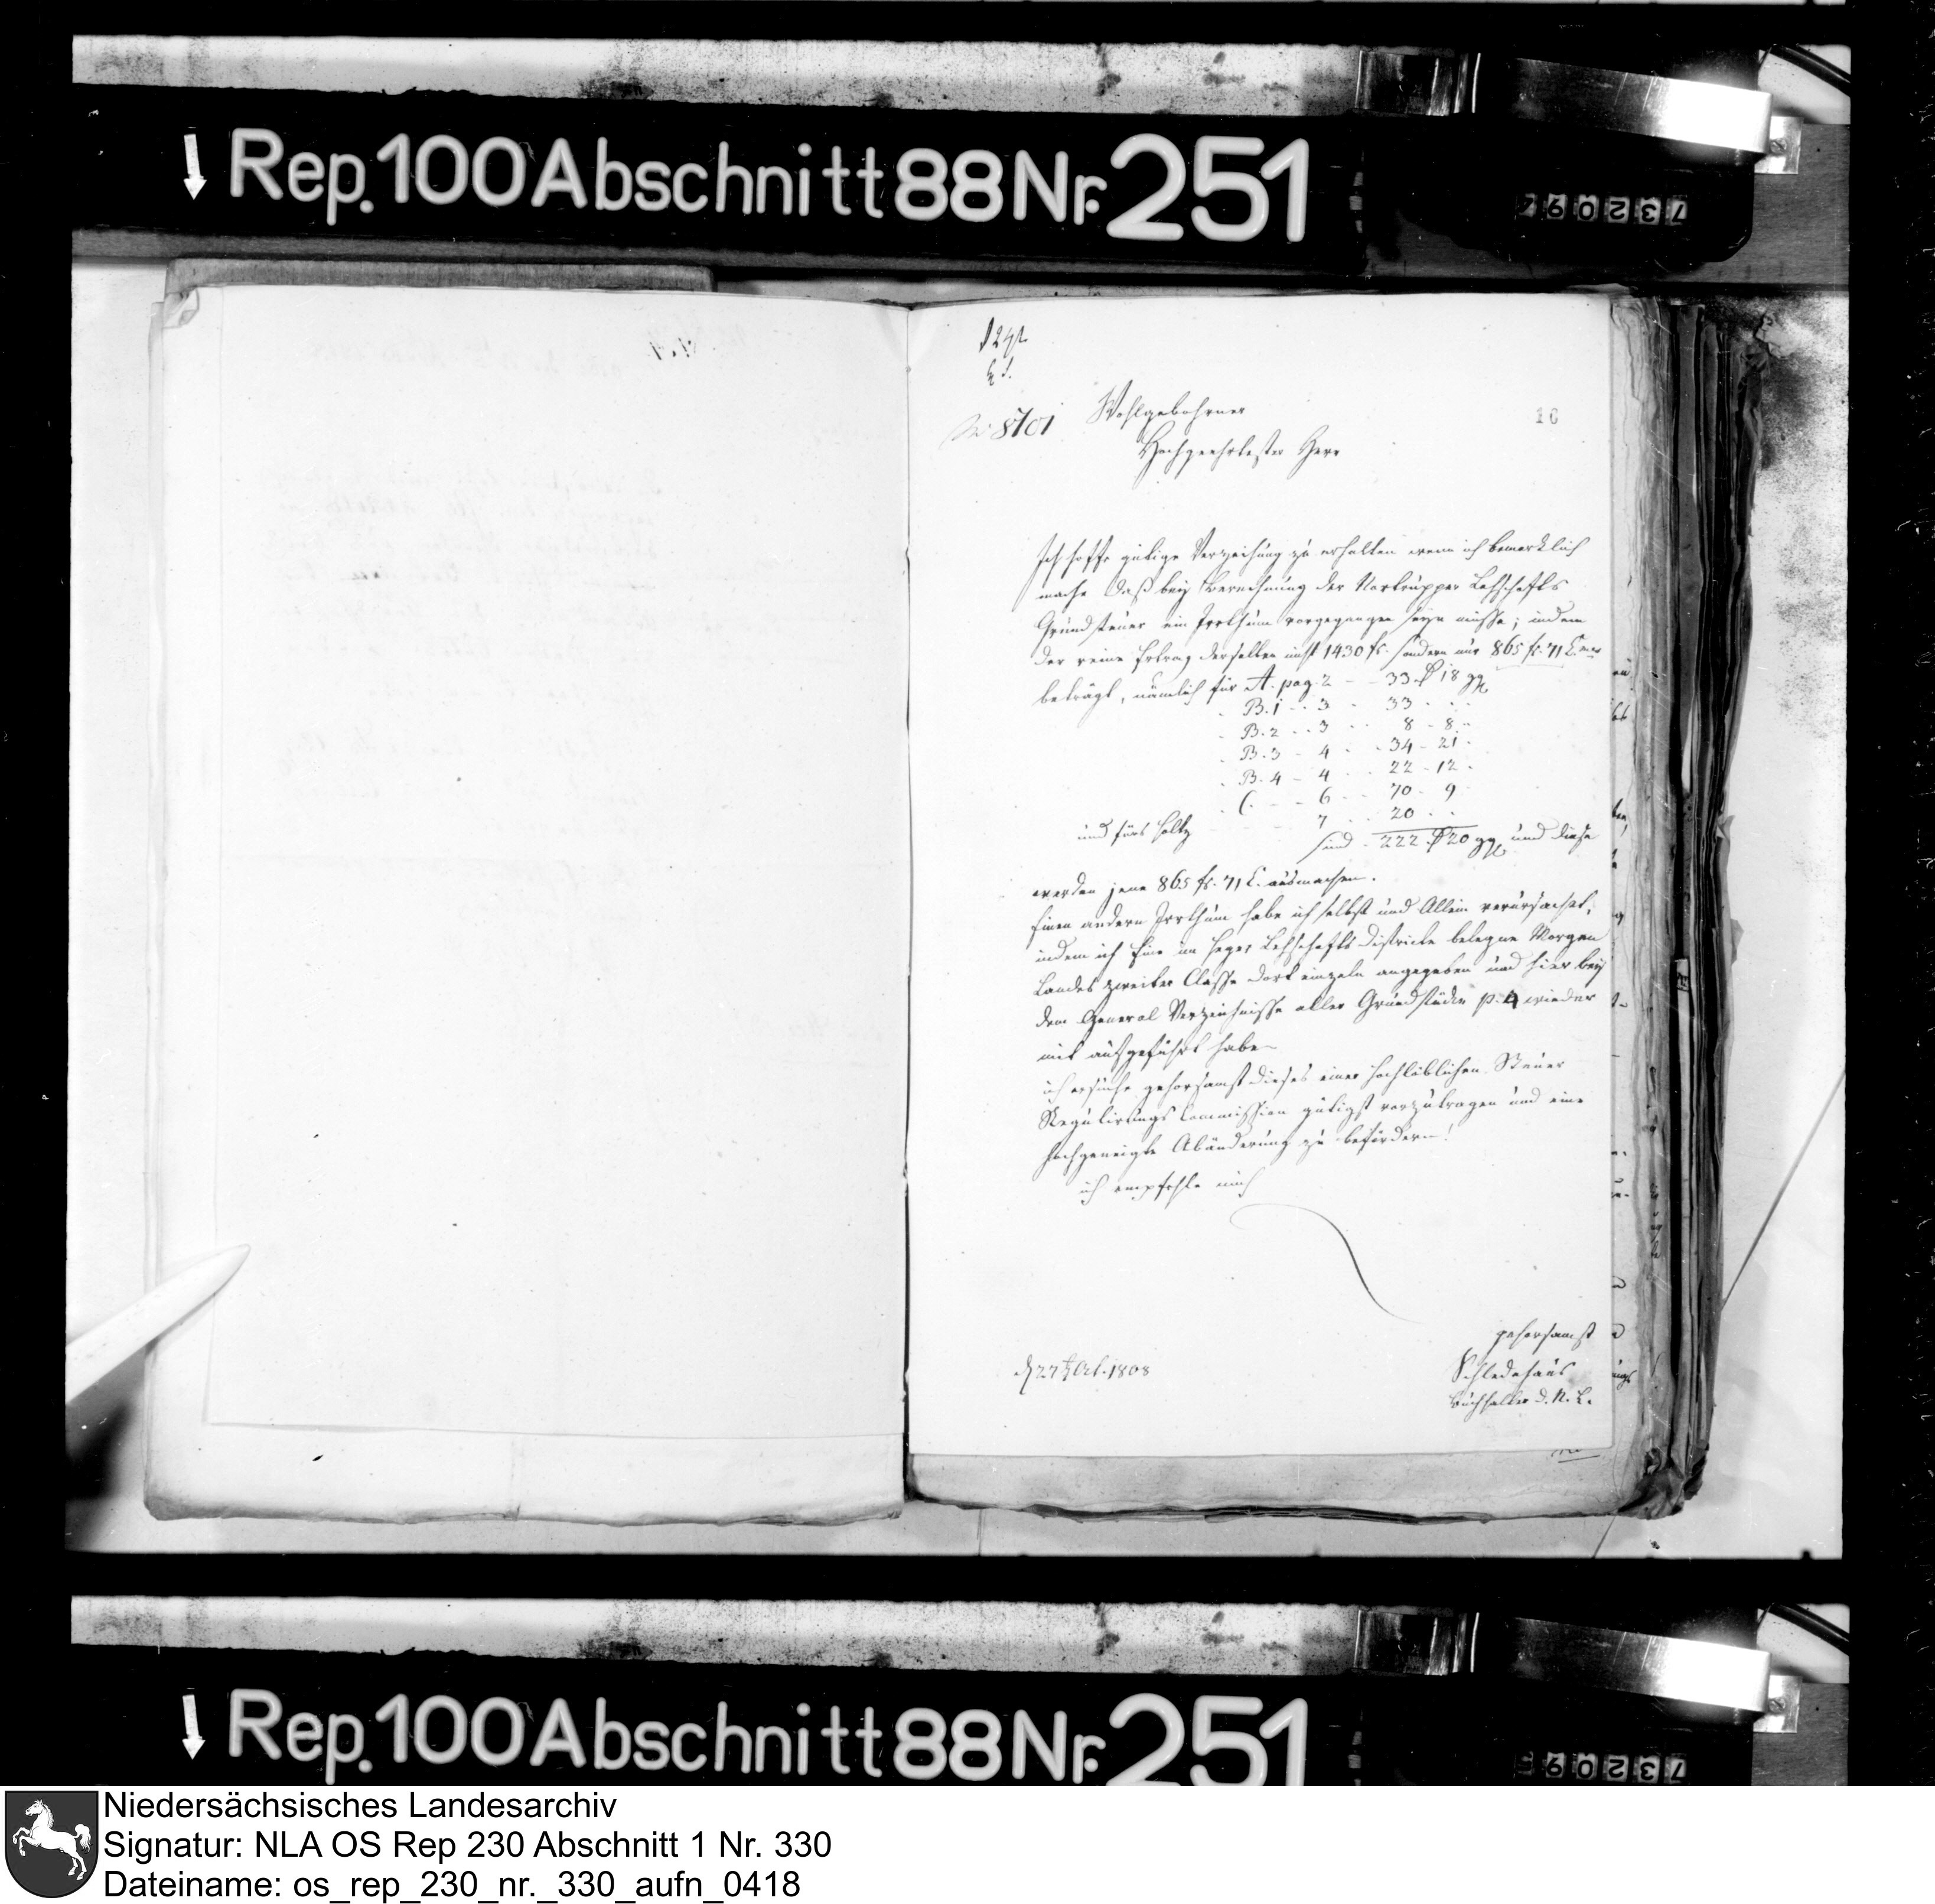 Rep. 100 Abschnitt 88 Nr. 251
732096
No 8701
Wohlgebohrner
16
Hochgeehrtester Herr
Ich hoffe gütige Verzeihung zu erhalten wenn ich bemerklich
mache daß bey Berechnung der Nortrupper Lehschafts
Grundsteuer ein Irrthum vorgegangen seyn müsse; indem
der reine Ertrag derselben nicht 1430 fr. sondern nur 865 fr. 71 C.
beträgt, nämlich für A. pag. 2 - - 33 ₰ 18 gg
B. 1 - - 3 - 33 - -
B. 2 - - 3 - - 8 - 8 -
B. 3 - 4 - - 34 - 21 -
B. 4 - 4 - - 22 - 12 -
C. - - 6 - - 70 - 9
und fürs Holtz 7 - - 20 - -
sind - 222 ₰ 20 gg und diese
werden jene 865 fr. 71 C. ausmachen.
Einen andern Irrthum habe ich selbst und Allein verursachet,
indem ich Eine im Heger Lehschafts Districte belegne Morgen
Landes zweiter Classe dort einzeln angegeben und hier bey
dem General Verzeichnisse aller Grundstücke p. 4 wieder
mit aufgeführt habe -
ich ersuche gehorsamst dieses einer hochlöblichen Steuer
Regulirungs Commission gütigst vorzutragen und eine
hochgeneigte Abänderung zu befördern!
ich empfehle mich
gehorsamst
d 27t Oct. 1808
Schledehaus
Buchhalter d. N. L.
Rep. 100 Abschnitt 88 Nr. 251
Niedersächsisches Landesarchiv
Signatur: NLA OS Rep 230 Abschnitt 1 Nr. 330
Dateiname: os_rep_230_nr._330_aufn_0418